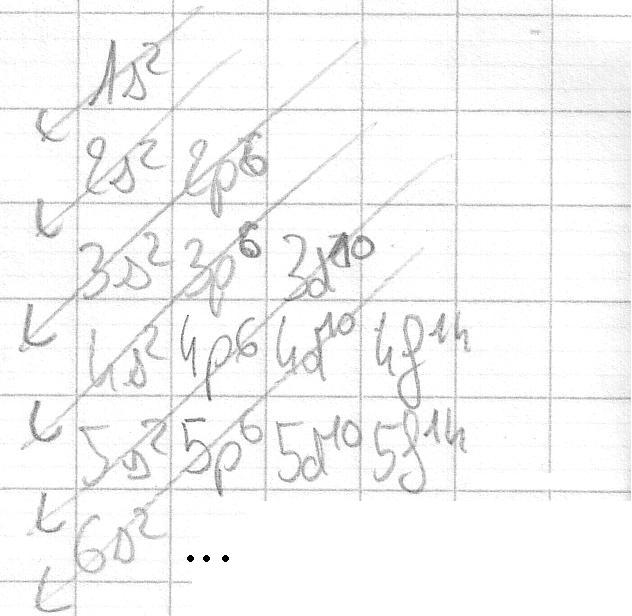 1s²
2s² 2p⁶
3s² 3p⁶ 3d¹⁰
4s² 4p⁶ 4d¹⁰ 4f¹⁴
5s² 5p⁶ 5d¹⁰ 5f¹⁴
6s² ...